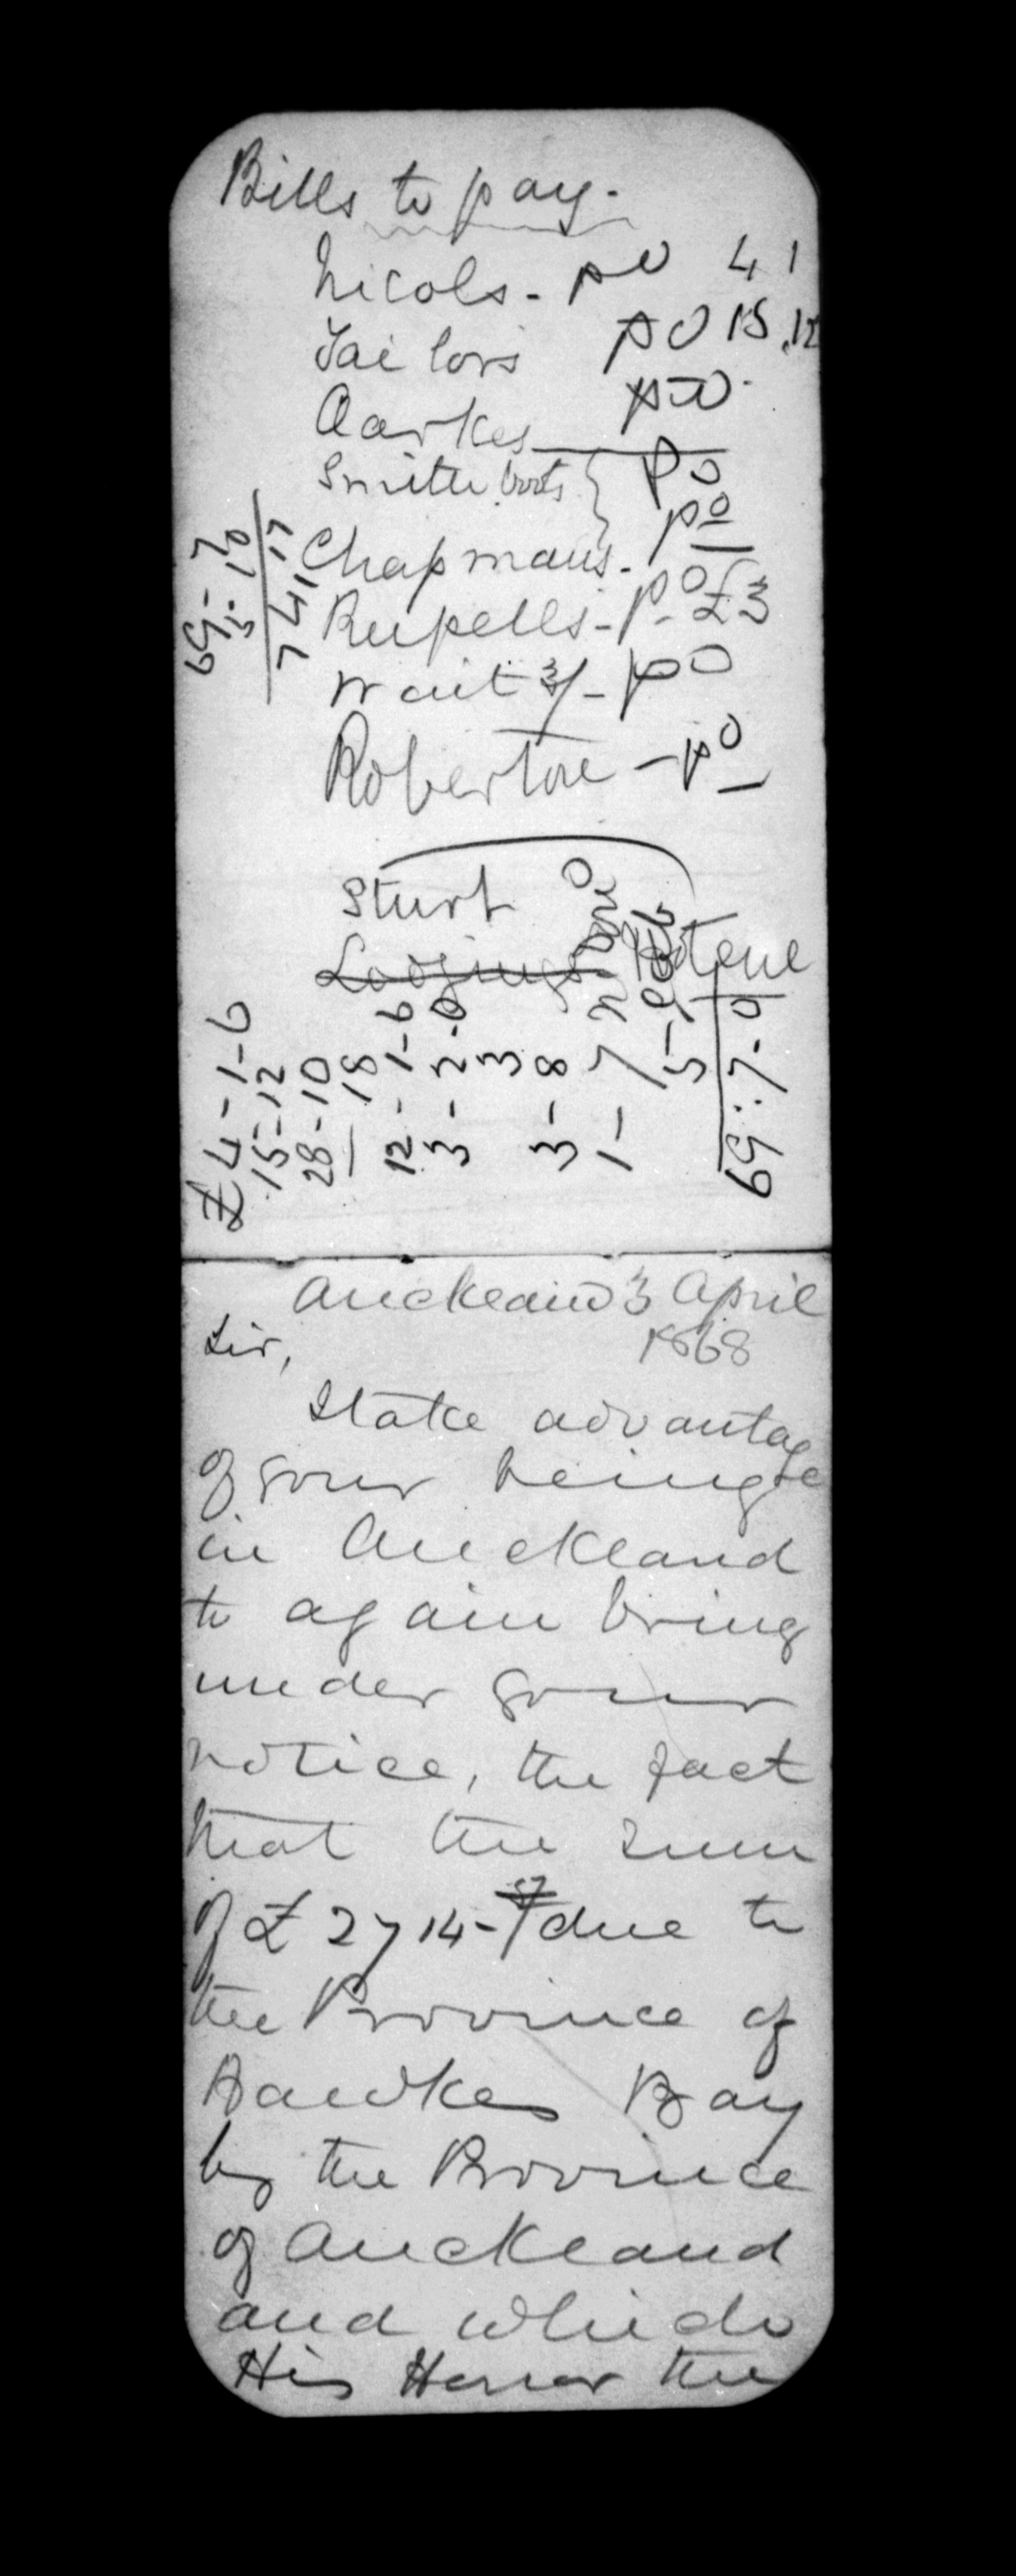 Bills to pay.
Nicols - pd 4 1
Tailors pd 15.12
Oarkes pd.
Smith boots pd
Chapmans. pd
Rupells - pd £3
Wait 3/- pd
Robertone - pd
69-7
5-10
74-17
Sturt
Lodgings
£4-1-6
15-12
28-10
18
12-1-6
3-2-0
3
3-8
1-7
5-
69:7-0
Auckland 3 April
1868
Sir,
I take advantage
of your being
in Auckland
to again bring
under your
notice, the fact
that the sum
of £2714- due to
the Province of
Hawkes Bay
by the Province
of Auckland
and which
His Honor the